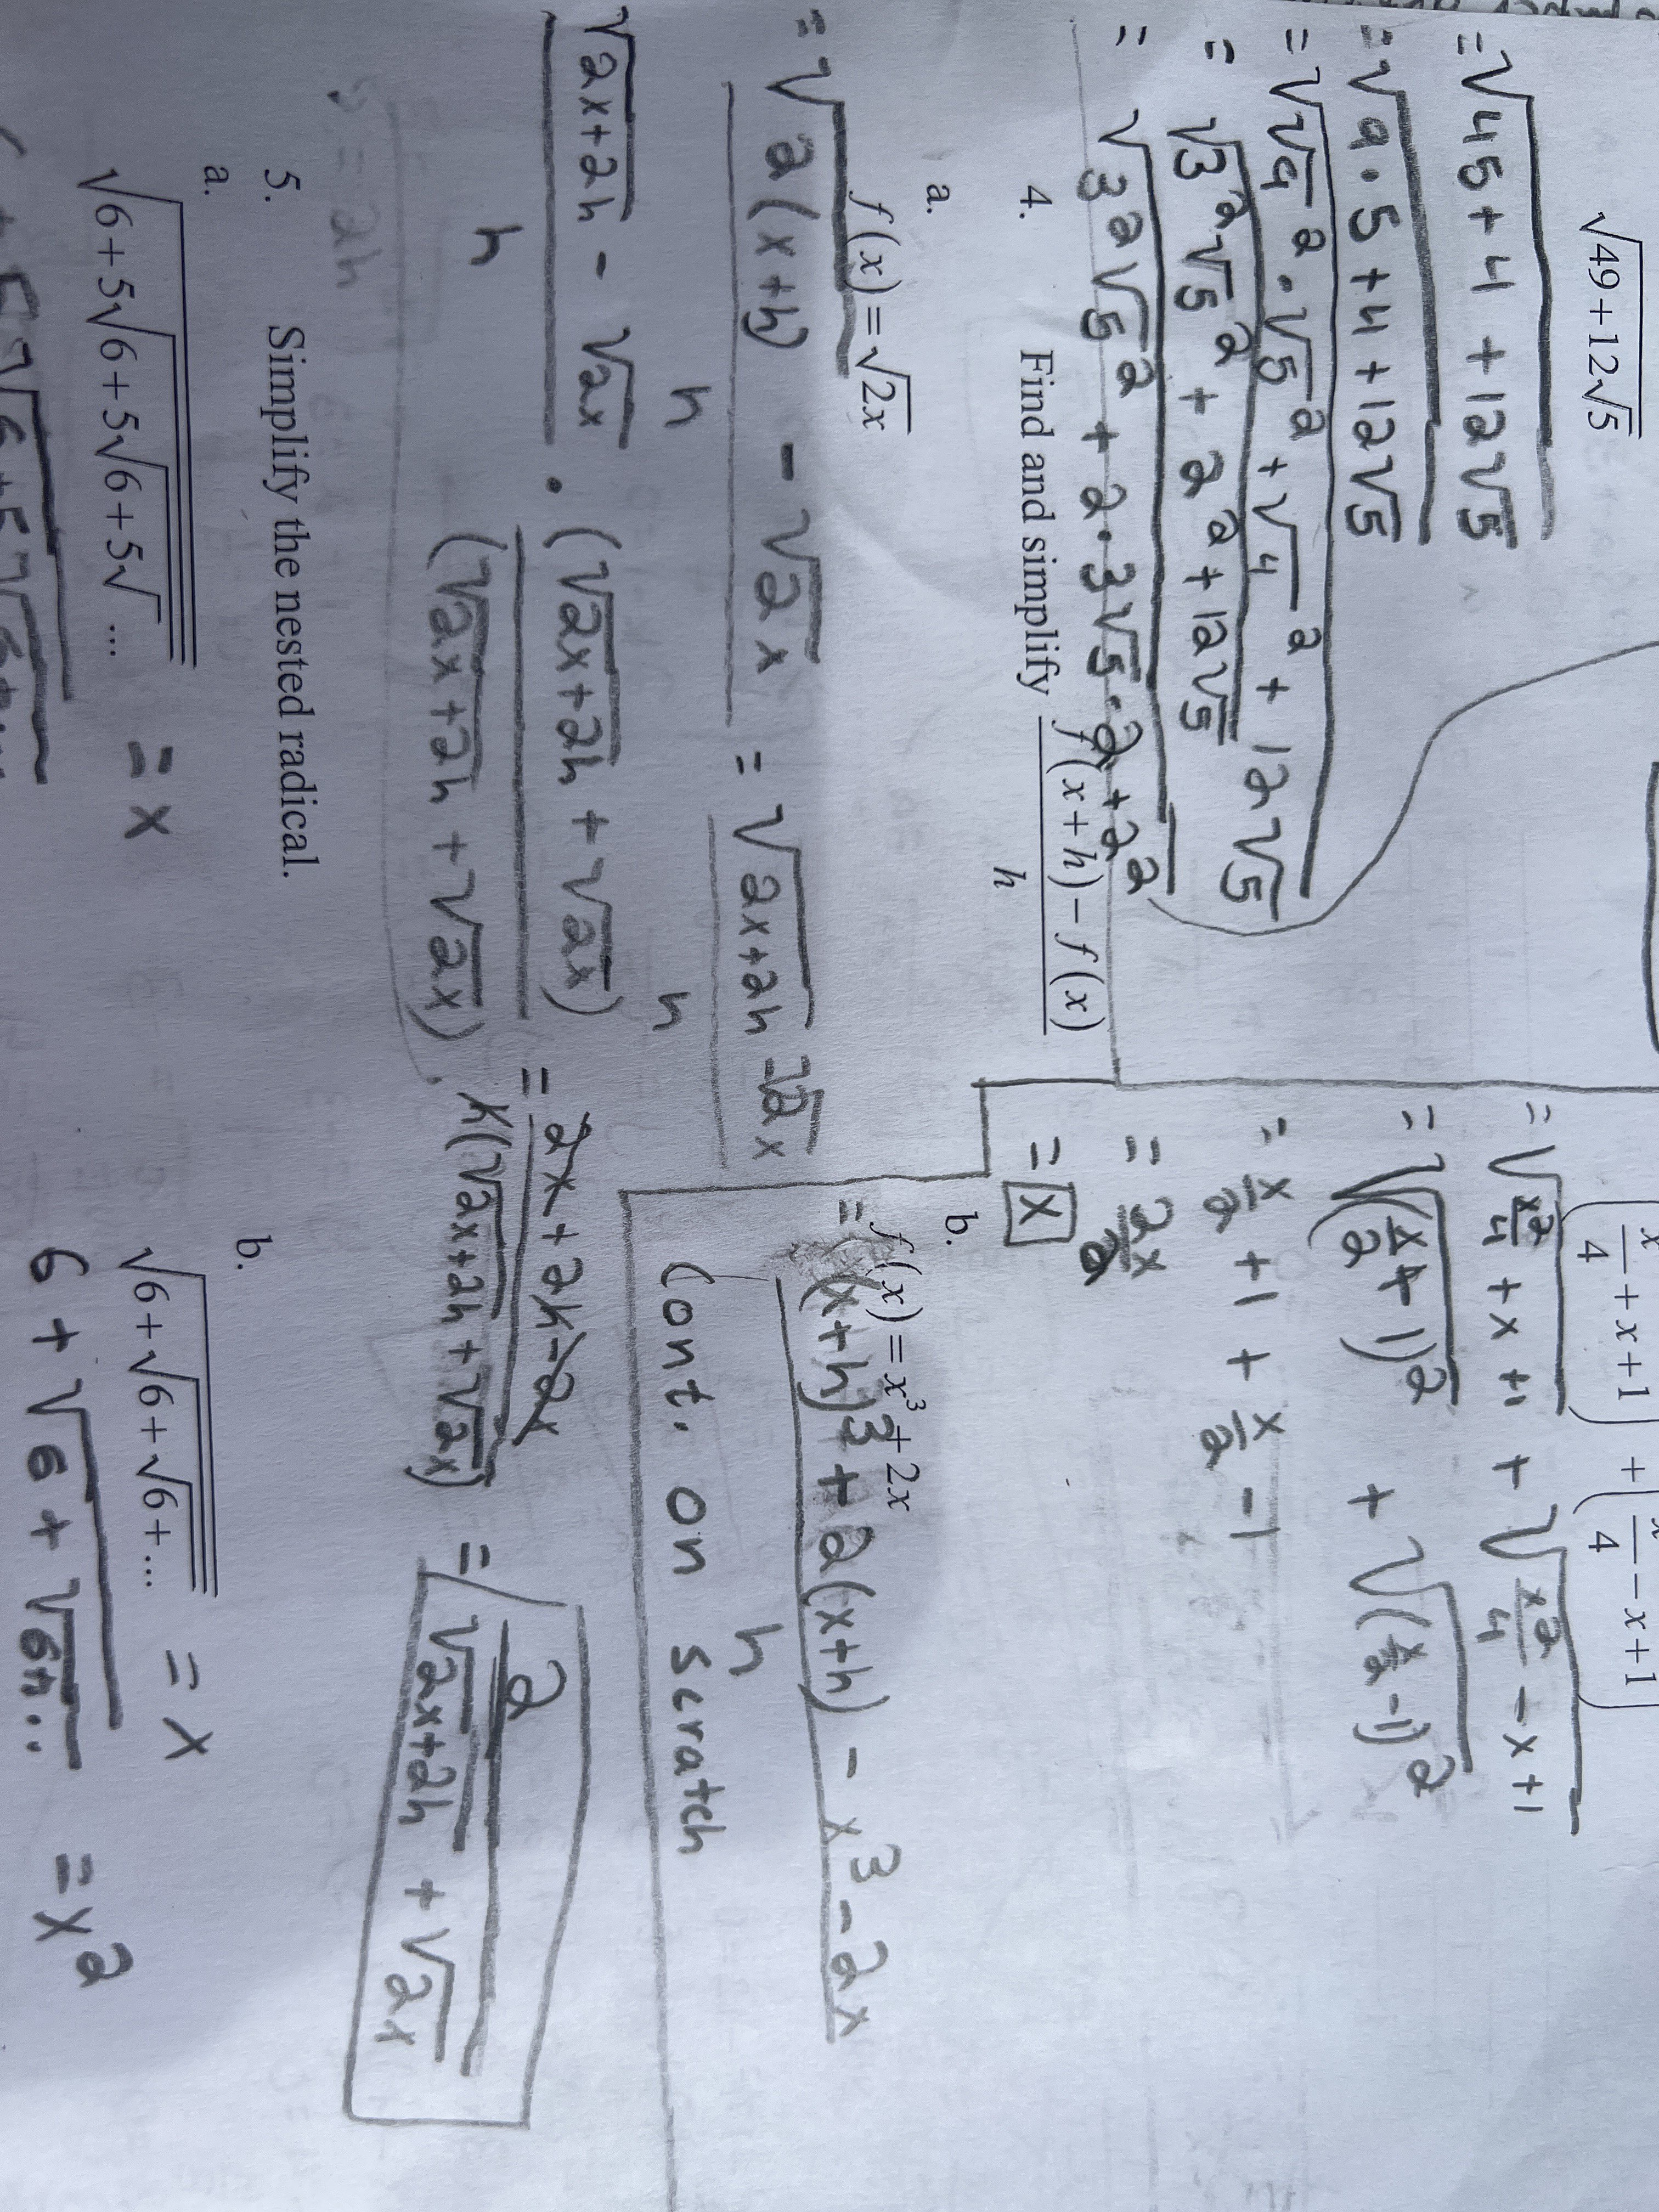 √(49+12√5)
= √(45+4 +12√5)
= √(9·5+4+12√5)
= √(√9² · √5² + √4² + 12√5)
= √(3²√5² + 2² + 12√5)
= √(3²√5² + 2·3√5·2 + 2²)
(x/4 + x+1) + (x/4 − x+1)
= √(x²/4 + x +1) + √(x²/4 − x +1)
= √((x/2 + 1)²) + √((x/2 −1)²)
= x/2 +1 + x/2 −1
= 2x/2
= x
4. Find and simplify (f(x+h)−f(x))/h
a.
f(x)=√2x
= (√(2(x+h)) − √2x)/h = (√(2x+2h) −√2x)/h
(√(2x+2h) − √2x)/h · (√(2x+2h) + √2x)/(√(2x+2h) + √2x) = (2x+2h−2x)/(h(√(2x+2h) + √2x)) = 2/(√(2x+2h) + √2x)
= 2h
b.
f(x)=x³+2x
= ((x+h)³ + 2(x+h) − x³ − 2x)/h
Cont. on scratch
5. Simplify the nested radical.
a.
√(6+5√(6+5√(6+5√ ... = x
b.
√(6+√(6+√(6+... = x
6 + √(6 + √(6+... = x²